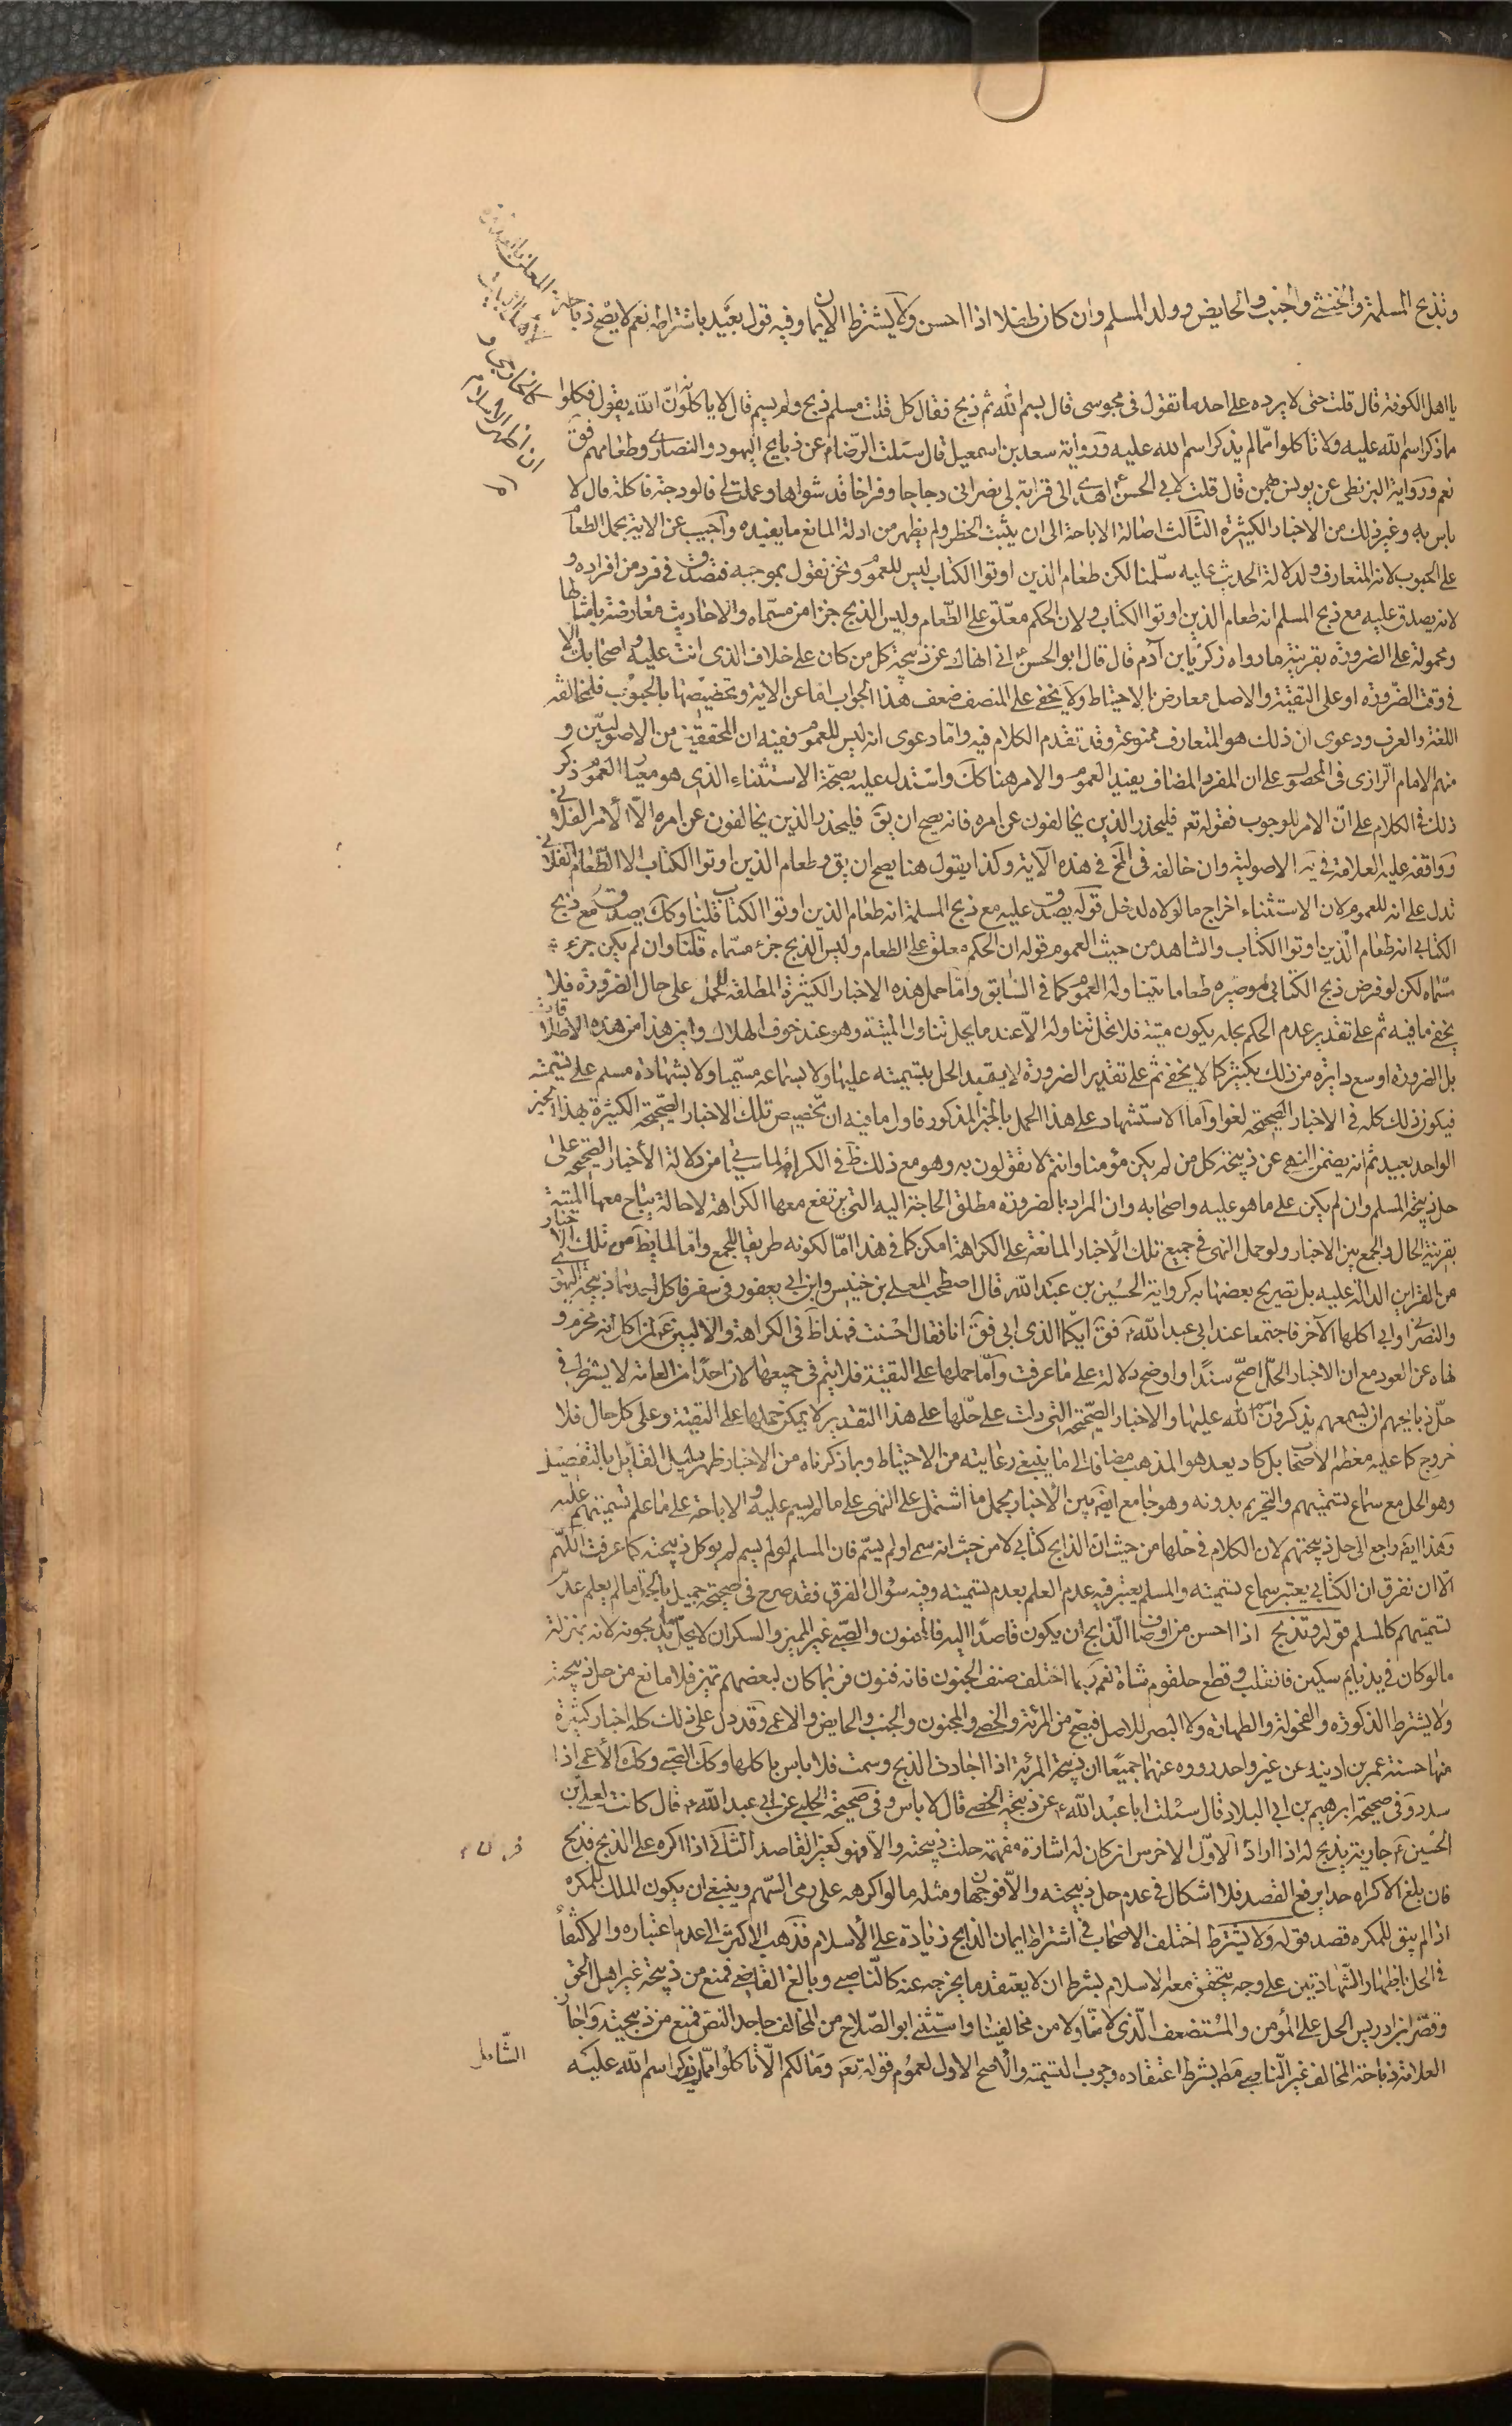 وتذبح المسلمة والخنثى والجنب والحايض وولد المسلم وان كان طفلا اذا احسن ولا يشترط الايمان وفيه قول بعيد باشتراطه نعم لا يصح ذباحة المعلن بالعداوة
لاهل البيت
كالخارجى و
ان اظهر الاسلام
يا اهل الكوفة قال قلت حتى لا يرده على احد ما تقول فى مجوسى قال بسم الله ثم ذبح فقال كل قلت مسلم ذبح ولم يسم قال لا ياكلونه ان الله يقول فكلوا
ما ذكر اسم الله عليه ولا تاكلوا مما لم يذكر اسم الله عليه ورواية سعد بن اسمعيل قال سئلت الرضا ع عن ذبايح اليهود والنصارى وطعامهم فق
نعم ورواية البزنطى عن يونس بهمن قال قلت لابى الحسن ع اهدى الى قرابة لى نصرانى دجاجا وفراخا قد شواها وعملت لى فالوذجة فاكلة قال لا
باس به وغير ذلك من الاخبار الكثيرة الثالث اصالة الاباحة الى ان يثبت الحظر ولم يظهر من ادلة المانع ما يفيده واجيب عن الاية بحمل الطعام
على الحبوب لانه المتعارف ولدلالة الحديث عليه سلمنا لكن طعام الذين اوتوا الكتاب ليس للعموم ونحن نقول بموجبه فتصدق فى فرد من افراده و
لانه يصدق عليه مع ذبح المسلم انه طعام الذين اوتوا الكتاب ولان الحكم معلق على الطعام وليس الذبح جزا من مسماه والاحاديث معارضة بامثالها
ومحمولة على الضرورة بقرينة ما رواه زكريا بن آدم قال قال ابو الحسن ع انى انهاك عن ذبيحة كل من كان على خلاف الذى انت عليه واصحابك الا
فى وقت الضرورة او على التقية والاصل معارض بالاحتياط ولا يخفى على المنصف ضعف هذا الجواب اما عن الاية وتخصيصها بالحبوب فلمخالفة
اللغة والعرف ودعوى ان ذلك هو المتعارف ممنوعة وقد تقدم الكلام فيه واما دعوى انه ليس للعموم ففيه ان المحققين من الاصوليين و
منهم الامام الرازى فى المحصول على ان المفرد المضاف يفيد العموم والامر هنا كك واستدل عليه بصحة الاستثناء الذى هو معيار العموم ذكر
ذلك فى الكلام على ان الامر للوجوب فقوله تعم فليحذر الذين يخالفون عن امره فانه يصح ان يق فليحذر الذين يخالفون عن امره الا الامر الفلانى
ووافقه عليه العلامة فى يه الاصولية وان خالفه فى المخ فى هذه الآية وكذا يقول هنا يصح ان يق وطعام الذين اوتوا الكتاب الا الطعام الفلانى
تدل على انه للعموم لان الاستثناء اخراج ما لولاه لدخل قوله يصدق عليه مع ذبح المسلم انه طعام الذين اوتوا الكتاب قلنا وكك يصدق مع ذبح
الكتابى انه طعام الذين اوتوا الكتاب والشاهد من حيث العموم قوله ان الحكم معلق على الطعام وليس الذبح جزء مسماه قلنا وان لم يكن جزء
مسماه لكن لو فرض ذبح الكتابى وصيره طعاما يتناوله العموم كما فى السابق واما حمل هذه الاخبار الكثيرة المطلقة للحل على حال الضرورة فلا
يخفى ما فيه ثم على تقدير عدم الحكم بحله يكون ميتة فلا تحل تناوله الا عند ما يحل تناول الميتة وهو عند خوف الهلاك واين هذا من هذه الاطلاقات
بل الضرورة اوسع دايرة من ذلك بكثير كما لا يخفى ثم على تقدير الضرورة لا يقيد الحل بتسميته عليها ولا بسماعه مسميا ولا بشهادة مسلم على تسميته
فيكون ذلك كله فى الاخبار الصحيحة لغوا واما الاستشهاد على هذا الحمل بالخبر المذكور فاول ما فيه ان تخصيص تلك الاخبار الصحيحة الكثيرة بهذا الخبر
الواحد بعيد ثم انه يضمن النهى عن ذبيحة كل من لم يكن مؤمنا وانتم لا تقولون به وهو مع ذلك ظ فى الكراهة لما سياتى من دلالة الأخبار الصحيحة على
حل ذبيحة المسلم وان لم يكن على ما هو عليه واصحابه وان المراد بالضرورة مطلق الحاجة اليه التى يرتفع معها الكراهة لا حالة يباح معها الميتة
بقرينة الحال والجمع بين الاخبار ولو حمل النهى فى جميع تلك الأخبار المانعة على الكراهة امكن كما فى هذا اما لكونه طريقا للجمع واما لما يظ من تلك الاخبار
من القراين الدالة عليه بل تصريح بعضها به كرواية الحسين بن عبد الله قال اصطحب المعلى بن خنيس وابن ابى يعفور فى سفر فاكل احدهما ذبيحة اليهود
والنصارى وابى اكلها الآخر فاجتمعا عند ابى عبد الله ع فق ايكما الذى ابى فق انا فقال احسنت فهذا ظ فى الكراهة والا لبين عم لمن اكل انه محرم و
نهاه عن العود مع ان الاخبار الحل اصح سندا واوضح دلالة على ما عرفت واما حملها على التقية فلا يتم فى جميعها لان احدا من العامة لا يشترط فى
حل ذبايحهم ان يسمعهم يذكرون اسم الله عليها والاخبار الصحيحة التى دلت على حلها على هذا التقدير لا يمكن حملها على التقية وعلى كل حال فلا
خروج كما عليه معظم الاصحاب بل كاد يعد هو المذهب مضافا الى ما ينبغى رعايته من الاحتياط وبما ذكرناه من الاخبار ظهر دليل القايل بالتفصيل
وهو الحل مع سماع تسميتهم والتحريم بدونه وهو جامع ايضا بين الأخبار بحمل ما اشتمل على النهى على ما لم يسم عليه والاباحة على ما علم تسميتهم عليه
وهذا ايضا راجع الى حل ذبيحتهم لان الكلام فى حلها من حيث ان الذابح كتابى لا من حيث انه سمى او لم يسم فان المسلم لو لم يسم لم يوكل ذبيحته كما عرفت اللهم
الا ان نفرق ان الكتابى يعتبر سماع تسميته والمسلم يعتبر فيه عدم العلم بعدم تسميته وفيه سؤال الفرق فقد صرح فى صحيحة جميل بالحل ما لم يعلم عدم
تسميتهم كالمسلم قوله وتذبح اذا احسن من اوصاف الذابح ان يكون قاصدا اليه فالمجنون والصبى غير المميز والسكران لا يحل ما يذبحونه لانه بمنزلة
ما لو كان فى يد نايم سكين فانقلب وقطع حلقوم شاة نعم ربما اختلف صنف الجنون فانه فنون فربما كان لبعضهم تميز فلا مانع من حل ذبيحته
ولا يشترط الذكورة والفحولة والطهارة ولا البصر للاصل فيصح من المرئة والخصى والمجنون والجنب والحايض والاعمى وقد دل على ذلك كله اخبار كثيرة
منها حسنة عمر بن اذينه عن غير واحد رووه عنهما جميعا ان ذبيحة المرئة اذا اجادت الذبح وسمت فلا باس باكلها وكك الصبى وكك الأعمى اذا
سدد وفى صحيحة ابرهيم بن ابى البلاد قال سئلت ابا عبد الله ع عن ذبيحة الخصى قال لا باس وفى صحيحة الحلبى عن ابى عبد الله ع قال كانت لعلى بن
الحسين ع جارية يذبح له اذا اراد الاول الاخرس ان كان له اشارة مفهمة حلت ذبيحته والا فهو كغير القاصد الثانى اذا اكره على الذبح فذبح
فان بلغ الاكراه حدا يرفع القصد فلا اشكال فى عدم حل ذبيحته والا فوجهان ومثله ما لو اكرهه على رمى السهم وينبغى ان يكون الملك للمكره
اذا لم يبق للمكره قصد قوله ولا يشترط اختلف الاصحاب فى اشتراط ايمان الذابح زيادة على الأسلام فذهب الاكثر الى عدم اعتباره والاكتفاء
فى الحل باظهار الشهادتين على وجه يتحقق معه الاسلام بشرط ان لا يعتقد ما يخرجه عنه كالناصبى وبالغ القاضى فمنع من ذبيحة غير اهل الحق
وقصر ابن ادريس الحل على المؤمن والمستضعف الذى لا منا ولا من مخالفينا واستثنى ابو الصلاح من المخالف جاحد النص فمنع من ذبيحته واجاز
العلامة ذباحة المخالف غير الناصبى مط بشرط اعتقاده وجوب التسمية والاصح الاول لعموم قوله تعم وما لكم الا تاكلوا مما ذكر اسم الله عليه
الشامل